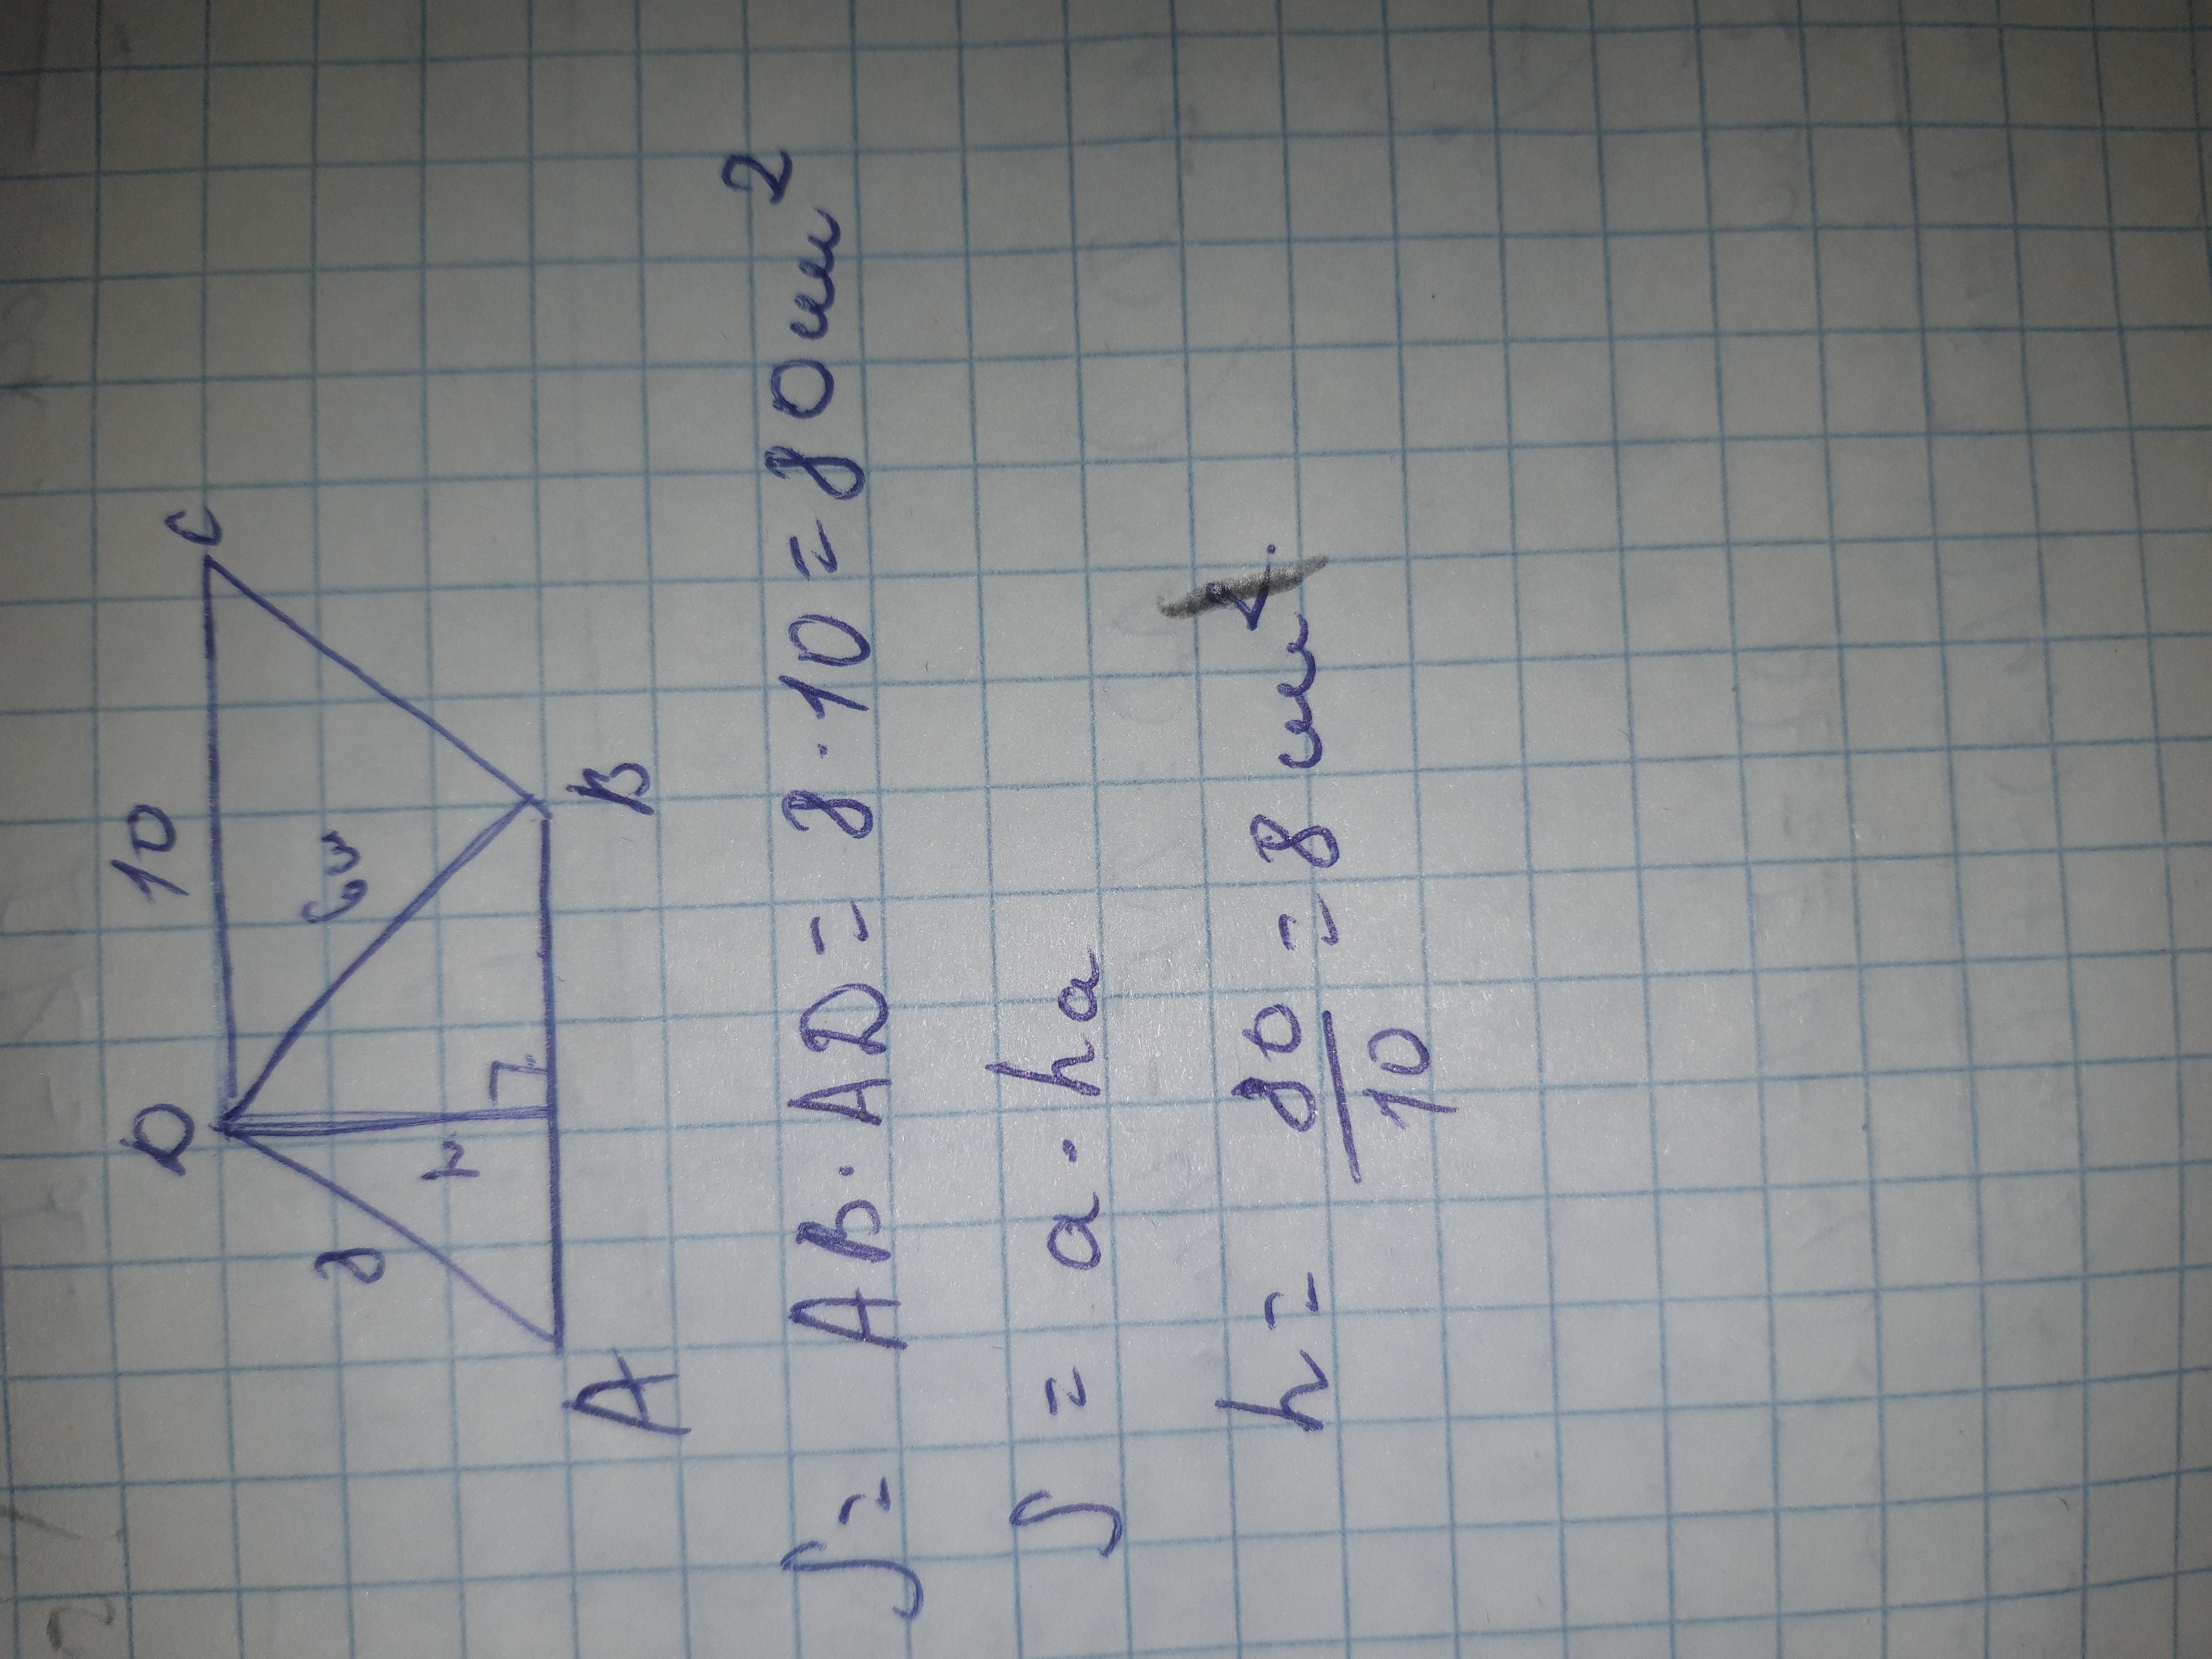 D 10 C
8 h 6см
A B
S = AB · AD = 8 · 10 = 80 см²
S = a · ha
h = 80/10 = 8 см